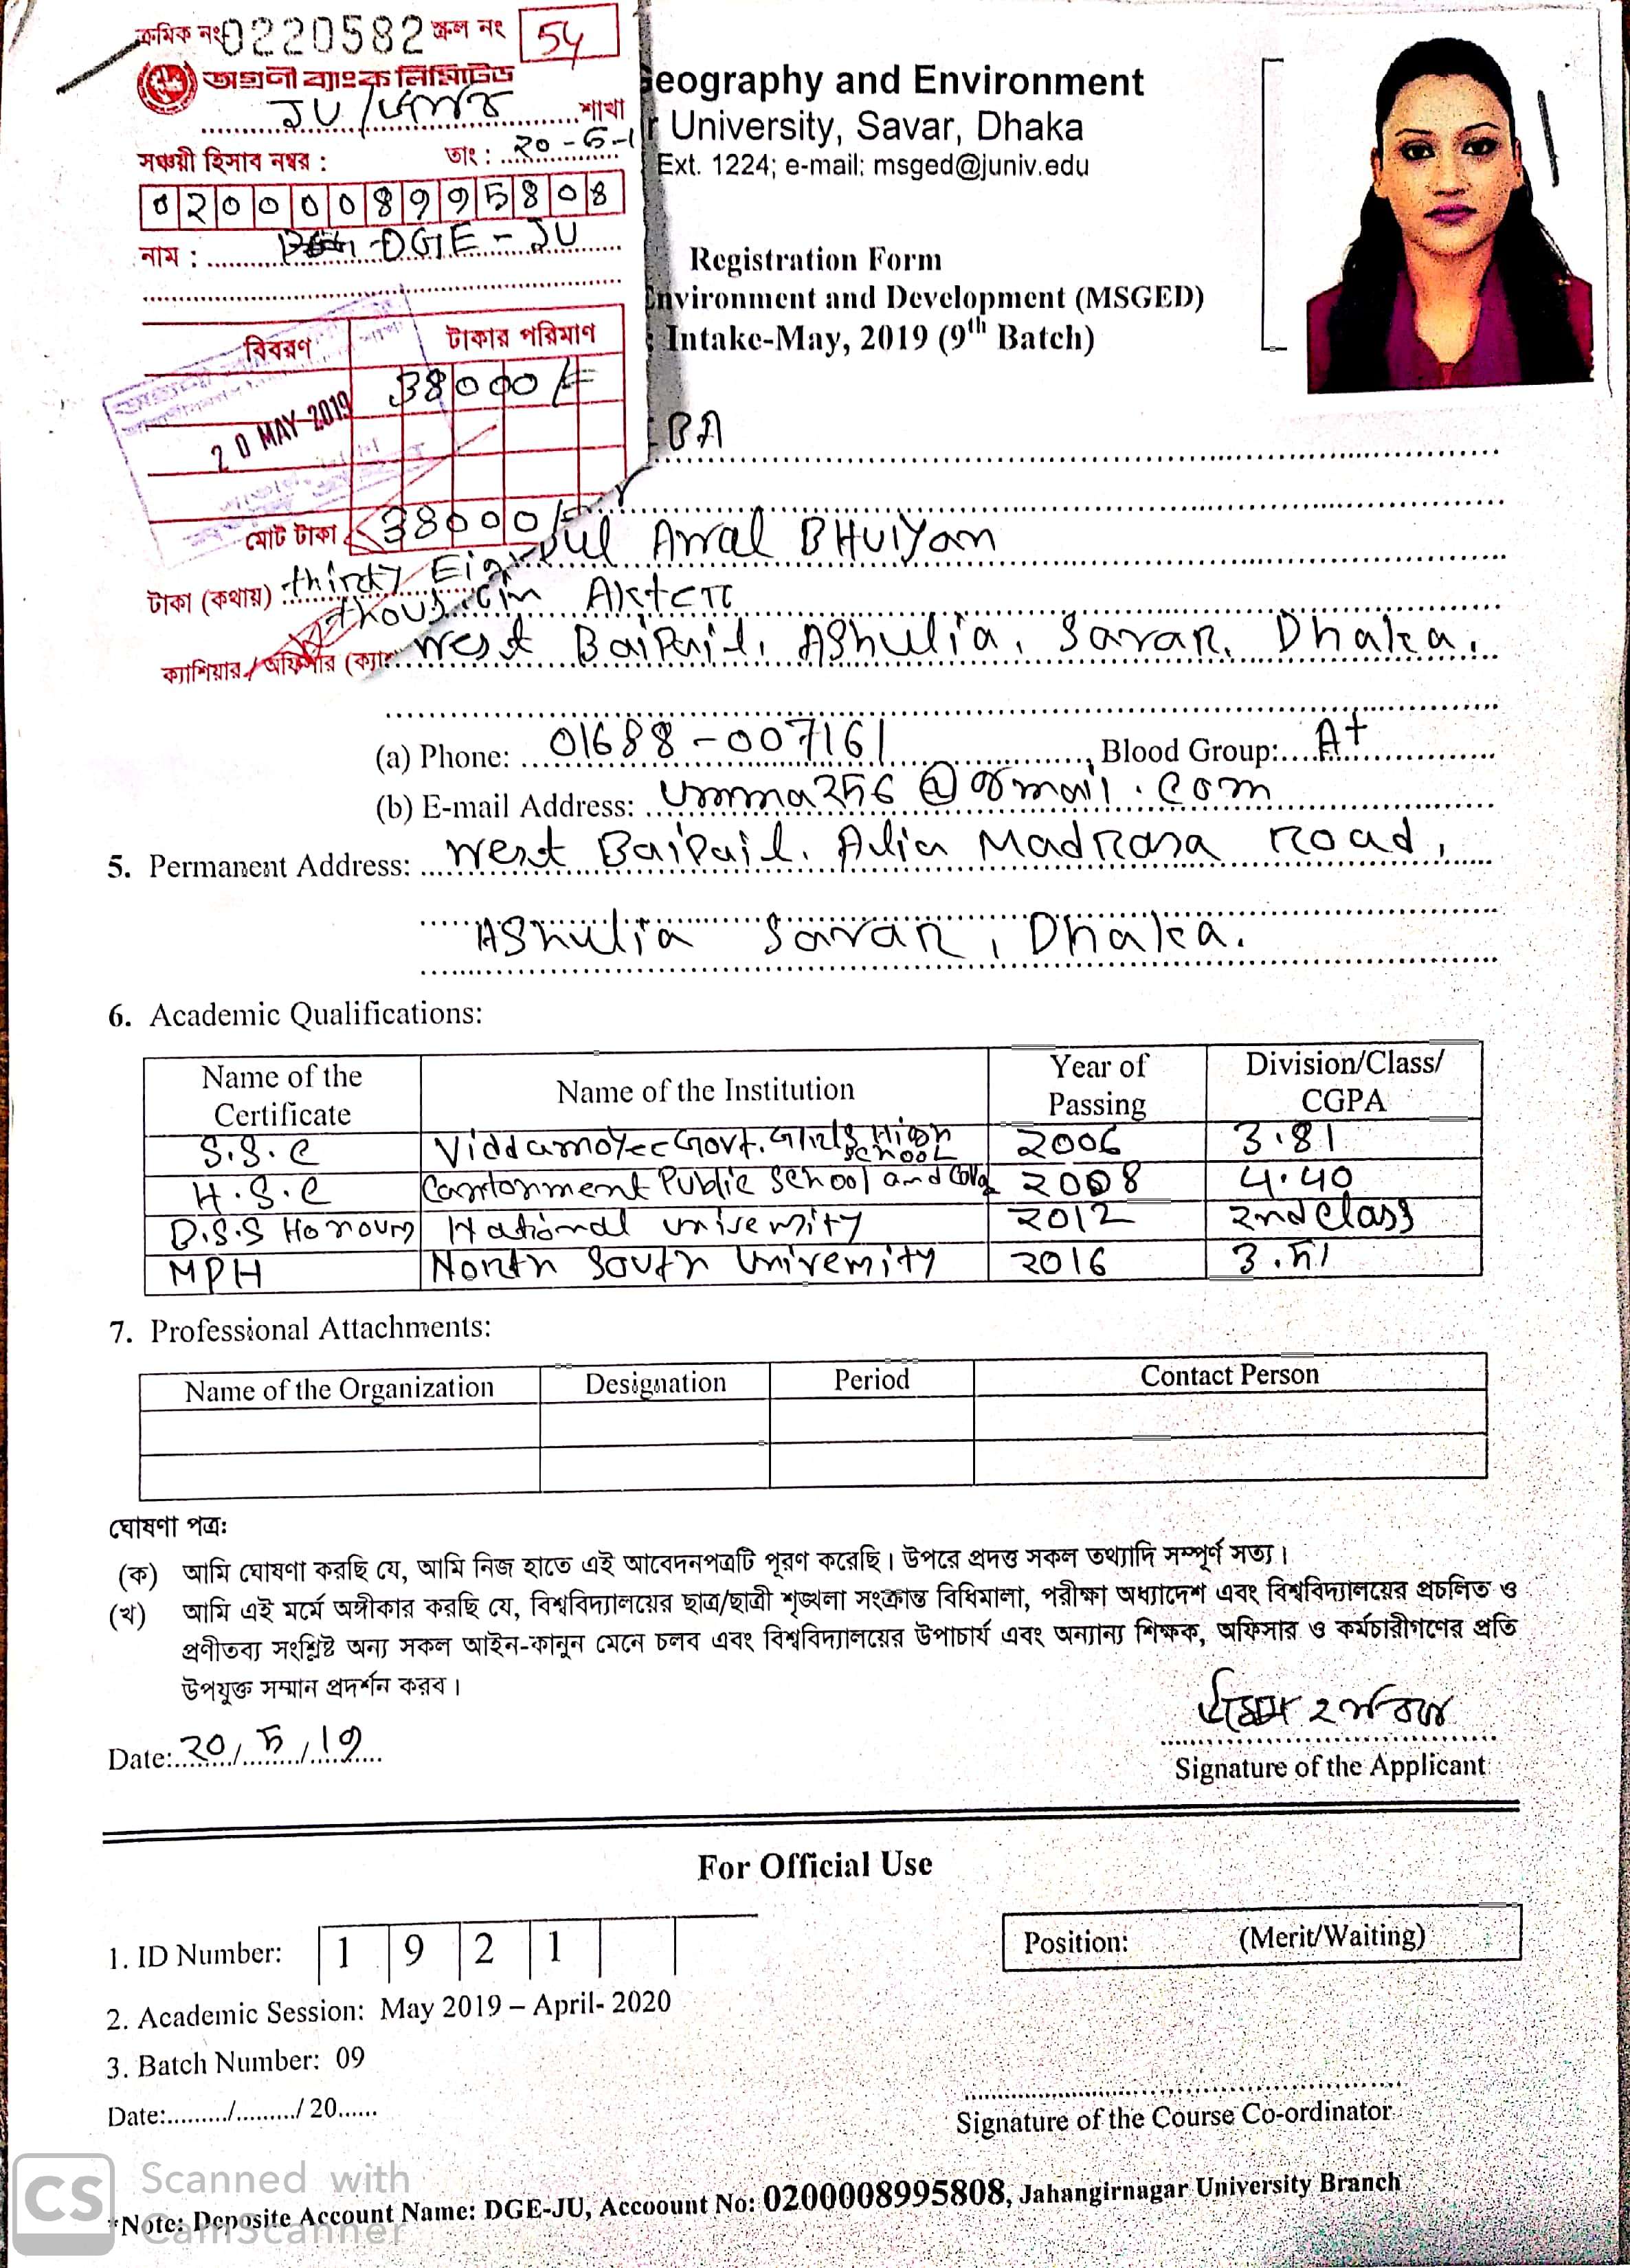 ক্রমিক নং 0220582 স্ক্রল নং 54
অগ্রণী ব্যাংক লিমিটেড
JU / শাখা
সঞ্চয়ী হিসাব নম্বর : তাং : 20-5-1
0200008995808
নাম : DGE-JU
বিবরণ টাকার পরিমাণ
38000/=
20 MAY 2019
মোট টাকা 38000/=
টাকা (কথায়) thirty Eig
thous
ক্যাশিয়ার / অফিসার (ক্যা
eography and Environment
r University, Savar, Dhaka
Ext. 1224; e-mail: msged@juniv.edu
Registration Form
Environment and Development (MSGED)
Intake-May, 2019 (9th Batch)
EBA
ul Awal BHuiyan
Akter
West Baipail, AShulia, Savar, Dhaka,
(a) Phone: 01688-007161, Blood Group: A+
(b) E-mail Address: umma256@gmail.com
5. Permanent Address: West Baipail, Alia Madrasa road,
AShulia Savar, Dhaka.
6. Academic Qualifications:
Name of the Certificate Name of the Institution Year of Passing Division/Class/ CGPA
S.S.C Viddamoyee Govt. Girls High School 2006 3.81
H.S.C Cantonment Public School and Collg 2008 4.40
B.S.S Honours National university 2012 2nd class
MPH North South University 2016 3.51
7. Professional Attachments:
Name of the Organization Designation Period Contact Person
ঘোষণা পত্র:
(ক) আমি ঘোষণা করছি যে, আমি নিজ হাতে এই আবেদনপত্রটি পূরণ করেছি। উপরে প্রদত্ত সকল তথ্যাদি সম্পূর্ণ সত্য।
(খ) আমি এই মর্মে অঙ্গীকার করছি যে, বিশ্ববিদ্যালয়ের ছাত্র/ছাত্রী শৃঙ্খলা সংক্রান্ত বিধিমালা, পরীক্ষা অধ্যাদেশ এবং বিশ্ববিদ্যালয়ের প্রচলিত ও
প্রণীতব্য সংশ্লিষ্ট অন্য সকল আইন-কানুন মেনে চলব এবং বিশ্ববিদ্যালয়ের উপাচার্য এবং অন্যান্য শিক্ষক, অফিসার ও কর্মচারীগণের প্রতি
উপযুক্ত সম্মান প্রদর্শন করব।
Date: 20/5/19
Signature of the Applicant
For Official Use
1. ID Number: 1 9 2 1 Position: (Merit/Waiting)
2. Academic Session: May 2019 – April- 2020
3. Batch Number: 09
Date:........./........./ 20......
Signature of the Course Co-ordinator
*Note: Deposite Account Name: DGE-JU, Accoount No: 0200008995808, Jahangirnagar University Branch
CS Scanned with
CamScanner